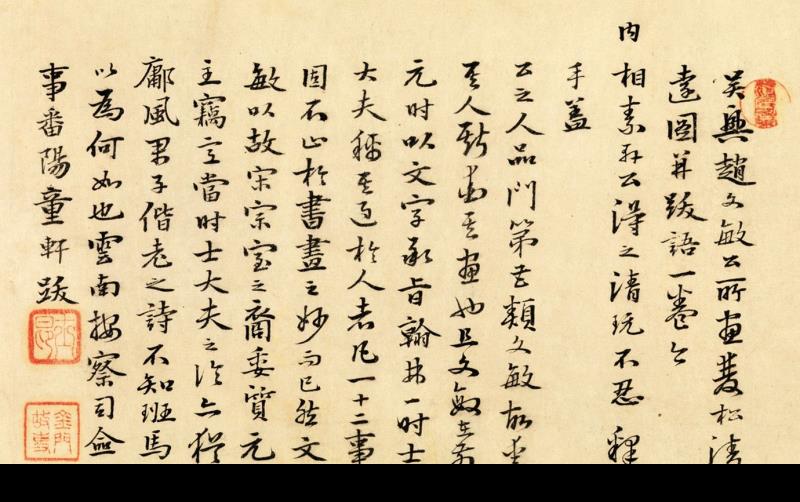 吳興趙文敏公所畫雙松清
遠圖并跋語一卷今
內相素軒公得之清玩不忍釋
手蓋
公之人品門第甚類文敏故重
其人斯愛其畫也且文敏在前
元時以文字承旨翰林一時士
大夫稱其過於人者凡一十二事
固不止於書畫之妙而已然文
敏以故宋宗室之裔委質元
主竊意當時士大夫之論亦猶
鄘風君子偕老之詩不知班馬
以為何如也雲南按察司僉
事番陽童軒跋
士昂